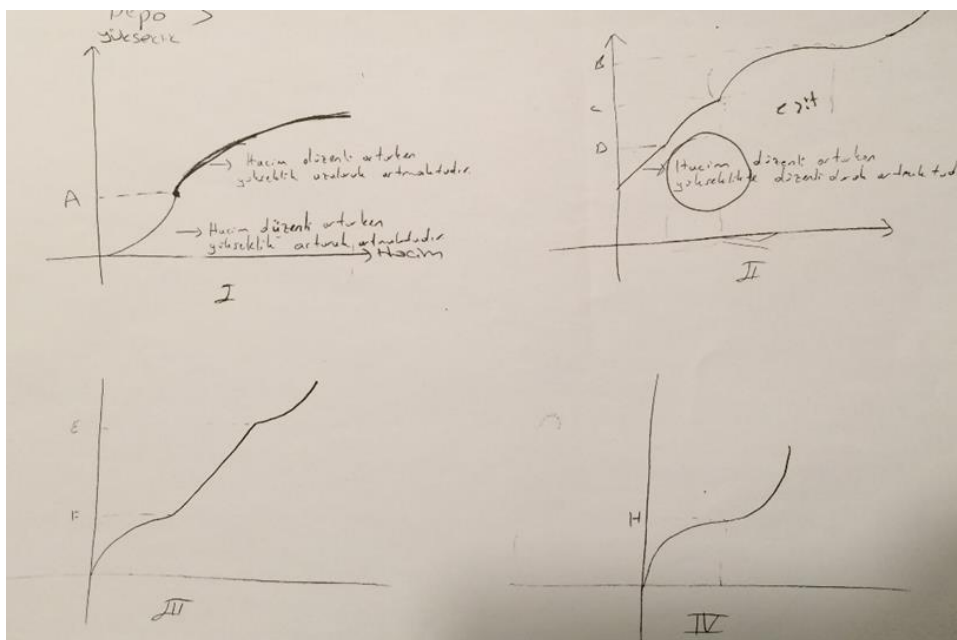 Depo
yükseklik
A
→ Hacim düzenli artarken
yükseklik azalarak artmaktadır.
→ Hacim düzenli artarken
yükseklik artarak artmaktadır
Hacim
I
B
C
D
eşit
→ Hacim düzenli artarken
yükseklikte düzenli olarak artmaktad
II
E
F
III
H
IV